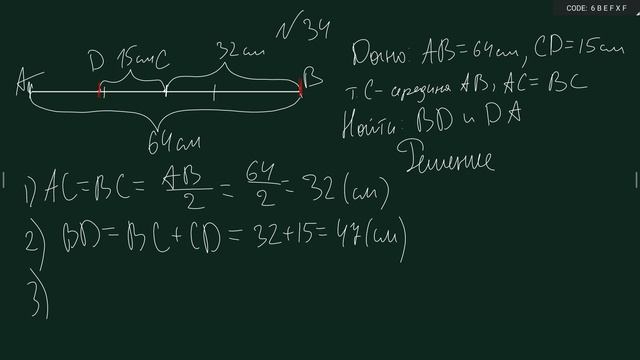 CODE: 6 B E F X F
№34
A D 15см C 32см B
64см
Дано: AB=64см, CD=15см
т. C - середина AB, AC=BC
Найти: BD и DA
Решение
1) AC=BC= AB/2 = 64/2 = 32 (см)
2) BD=BC+CD=32+15=47(см)
3)